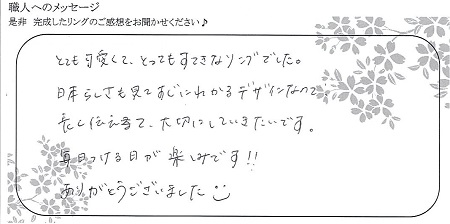 職人へのメッセージ
是非 完成したリングのご感想をお聞かせください♪
とても可愛くて、とってもすてきなリングでした。
日本らしさも見てすぐにわかるデザインなので、
長く伝え 大切にしていきたいです。
毎日つける日が楽しみです!!
ありがとうございました